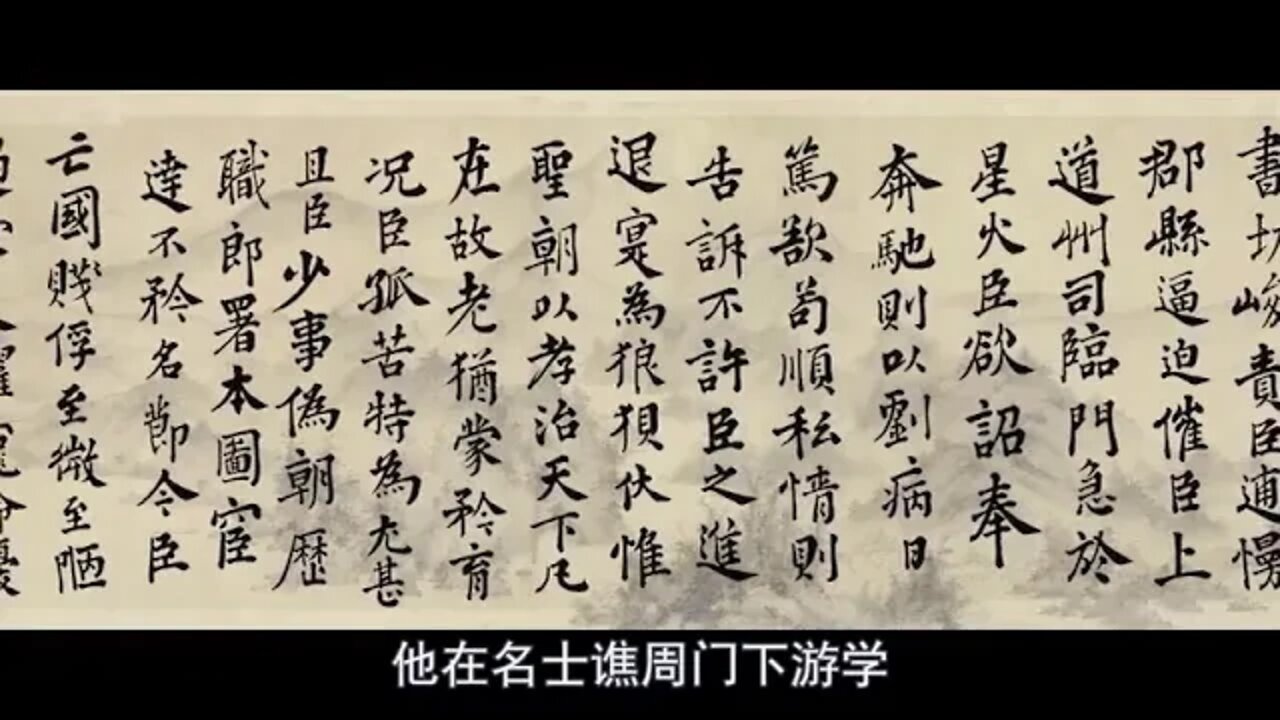 書切峻責臣逋慢
郡縣逼迫催臣上
道州司臨門急於
星火臣欲詔奉
奔馳則以劉病日
篤欲苟順私情則
告訴不許臣之進
退寔為狼狽伏惟
聖朝以孝治天下凡
在故老猶蒙矜育
况臣孤苦特為尤甚
且臣少事偽朝歷
職郎署本圖宦
達不矜名節今臣
亡國賤俘至微至陋
他在名士谯周门下游学